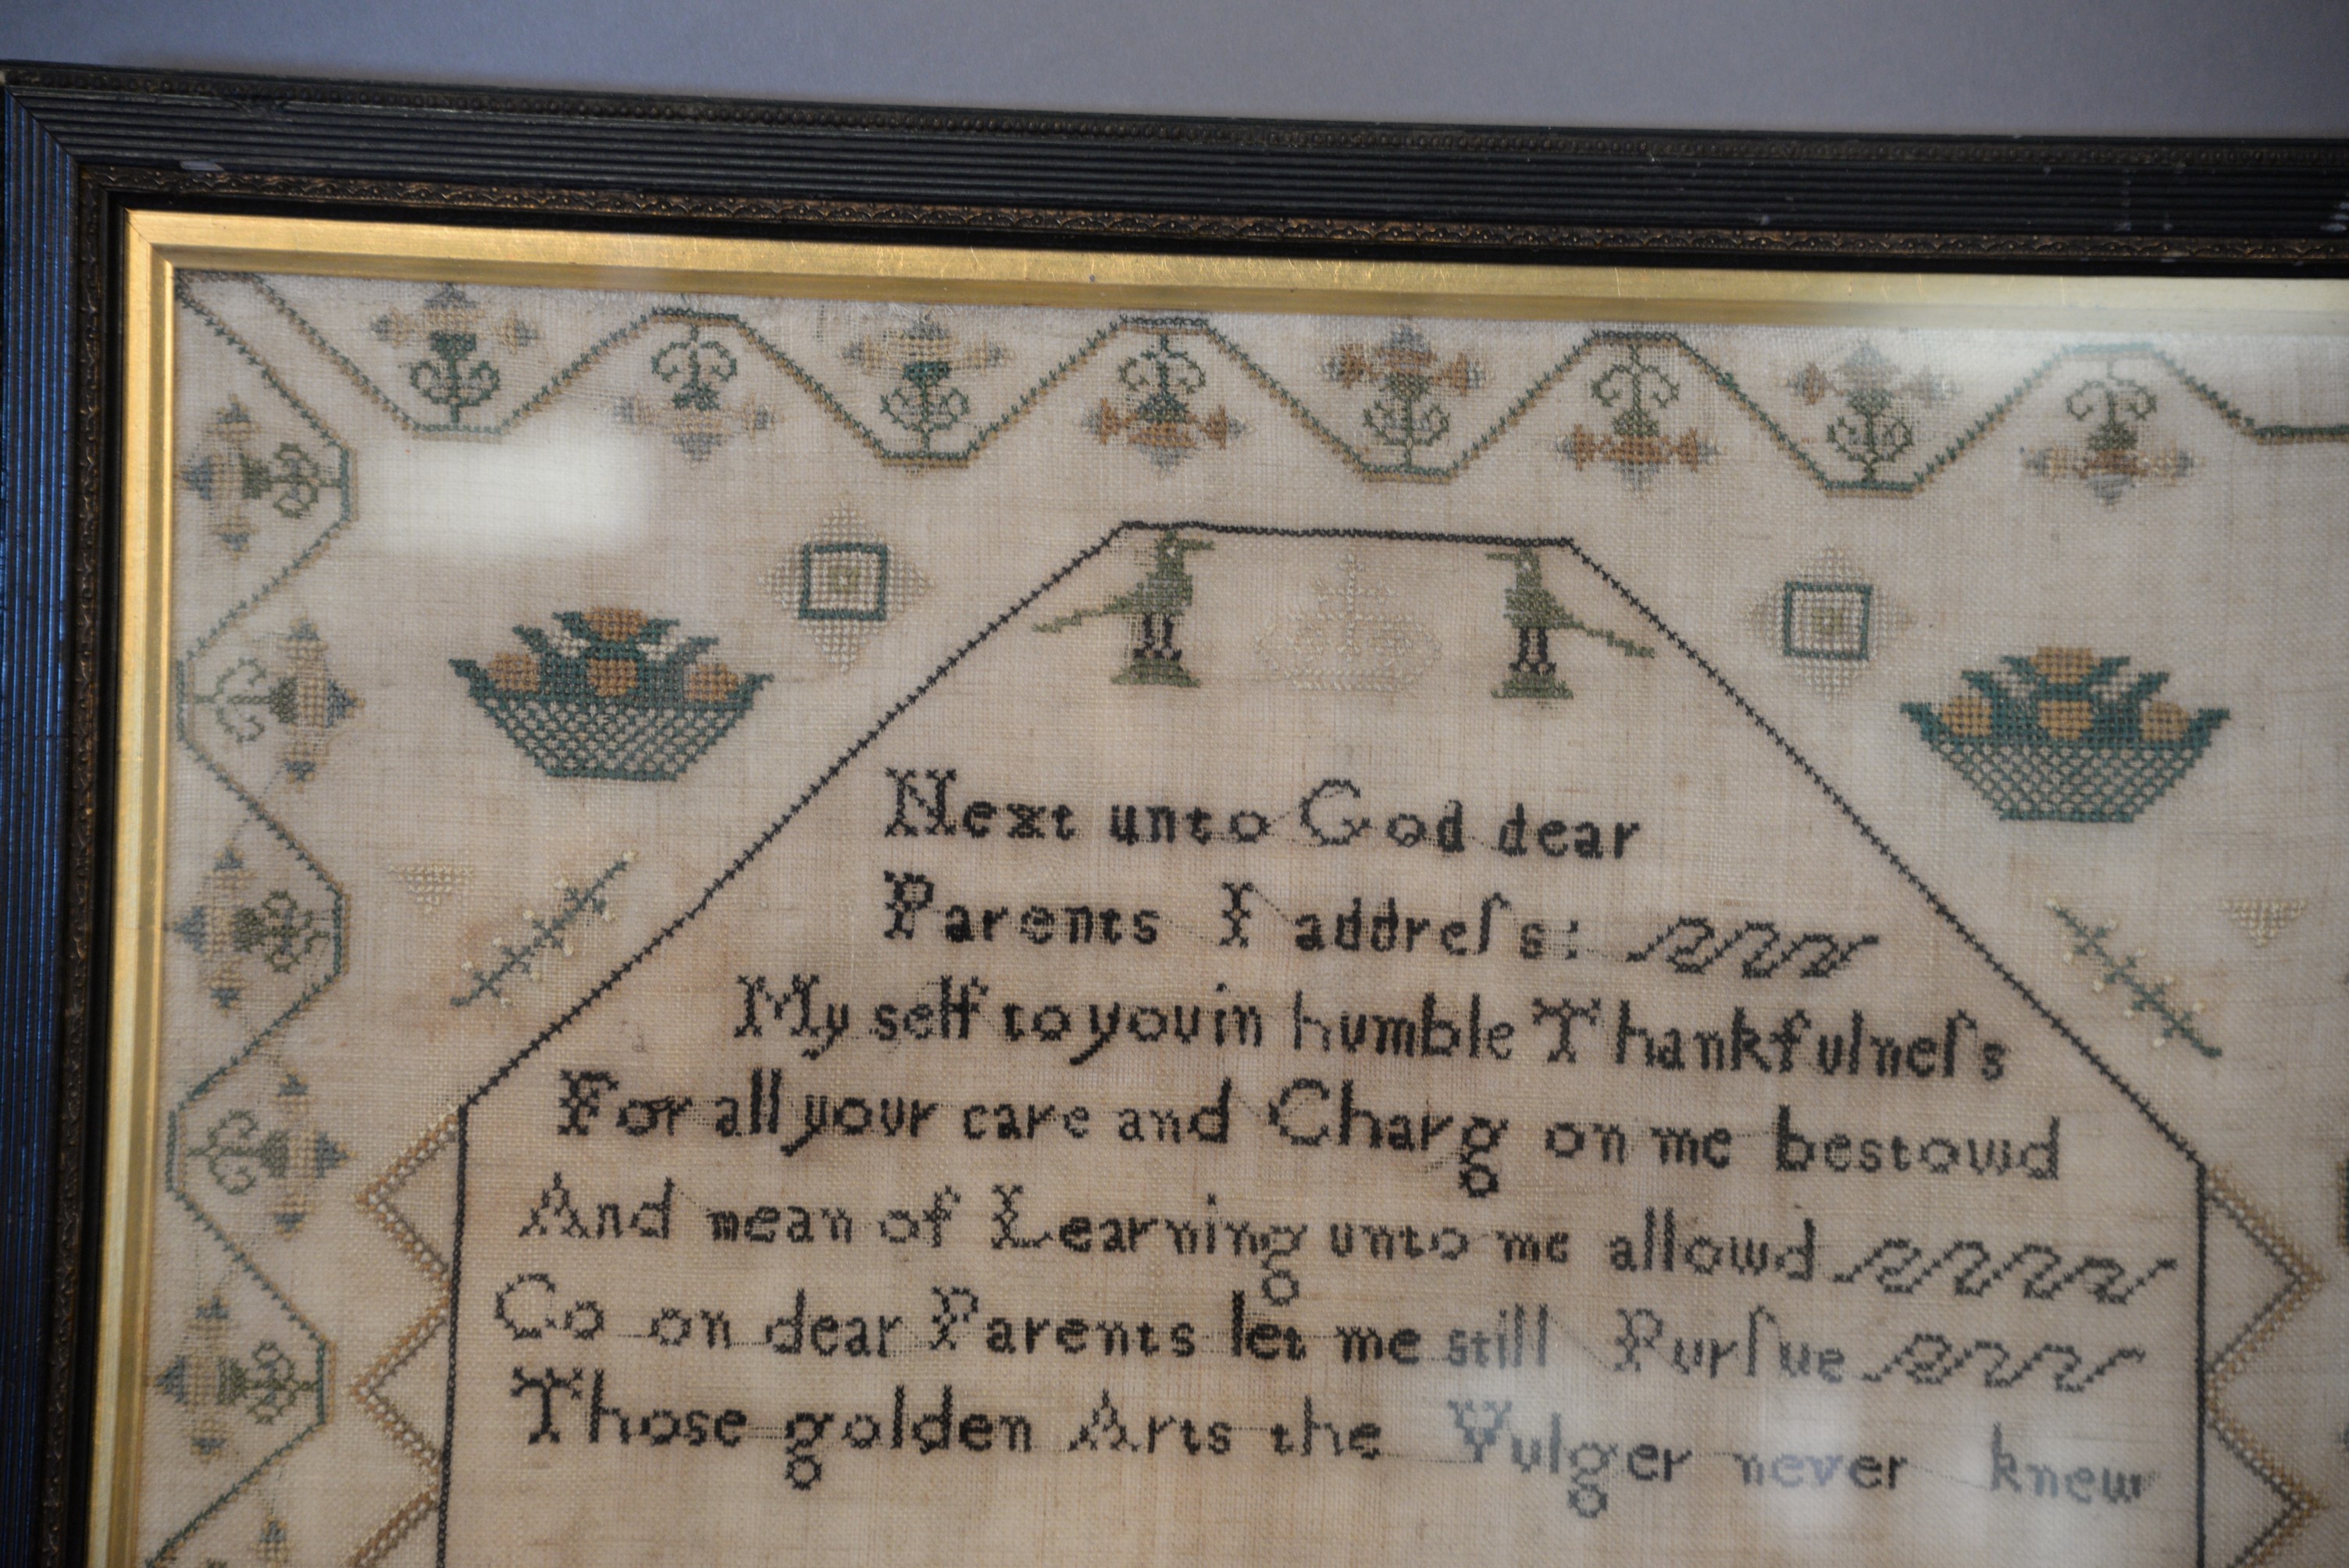 Next unto God dear
Parents I addreſs:
My self to you in humble Thankfulneſs
For all your care and Charg on me bestowd
And mean of Learning unto me allowd
Go on dear Parents let me still Purſue
Those golden Arts the Vulger never knew